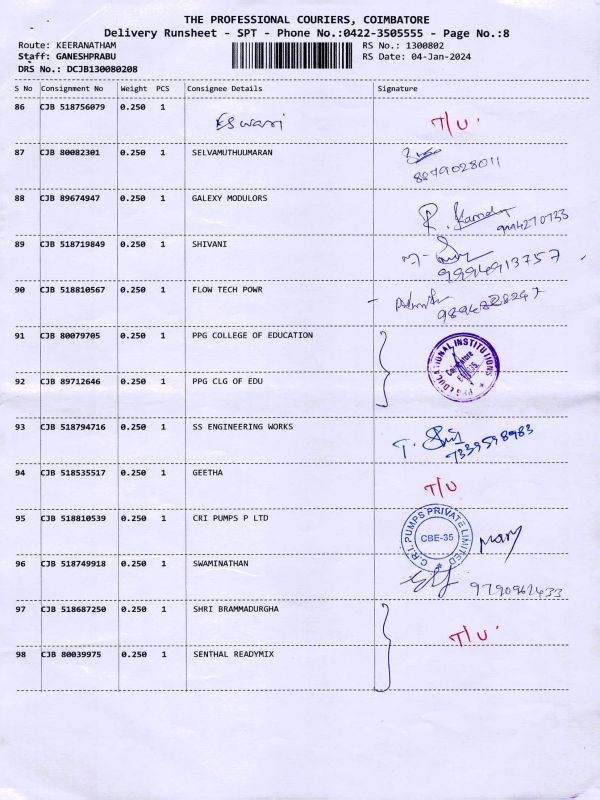 THE PROFESSIONAL COURIERS, COIMBATORE
Delivery Runsheet - SPT - Phone No.:0422-3505555 - Page No.:8
Route: KEERANATHAM RS No.: 1300802
Staff: GANESHPRABU RS Date: 04-Jan-2024
DRS No.: DCJB130080208
S No Consignment No Weight PCS Consignee Details Signature
86 CJB 518756079 0.250 1 Eswari T/U
87 CJB 80082301 0.250 1 SELVAMUTHUUMARAN
88 CJB 89674947 0.250 1 GALEXY MODULORS
89 CJB 518719849 0.250 1 SHIVANI
9994913757
90 CJB 518810567 0.250 1 FLOW TECH POWR
91 CJB 80079705 0.250 1 PPG COLLEGE OF EDUCATION
PPG EDUCATIONAL INSTITUTIONS
92 CJB 89712646 0.250 1 PPG CLG OF EDU
93 CJB 518794716 0.250 1 SS ENGINEERING WORKS
7339598983
94 CJB 518535517 0.250 1 GEETHA T/U
95 CJB 518810539 0.250 1 CRI PUMPS P LTD
C.R.I. PUMPS PRIVATE LIMITED
CBE-35
96 CJB 518749918 0.250 1 SWAMINATHAN
9790962433
97 CJB 518687250 0.250 1 SHRI BRAMMADURGHA
T/U
98 CJB 80039975 0.250 1 SENTHAL READYMIX